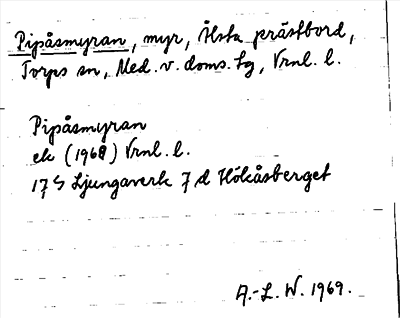 Pipåsmyran, myr, Ålsta prästbord,
Torps sn, Med. v. doms. tg, Vrnl. l.
Pipåsmyran
ek (1968) Vrnl. l.
17 G Ljungaverk 7 d Hölåsberget
A.-L. W. 1969.